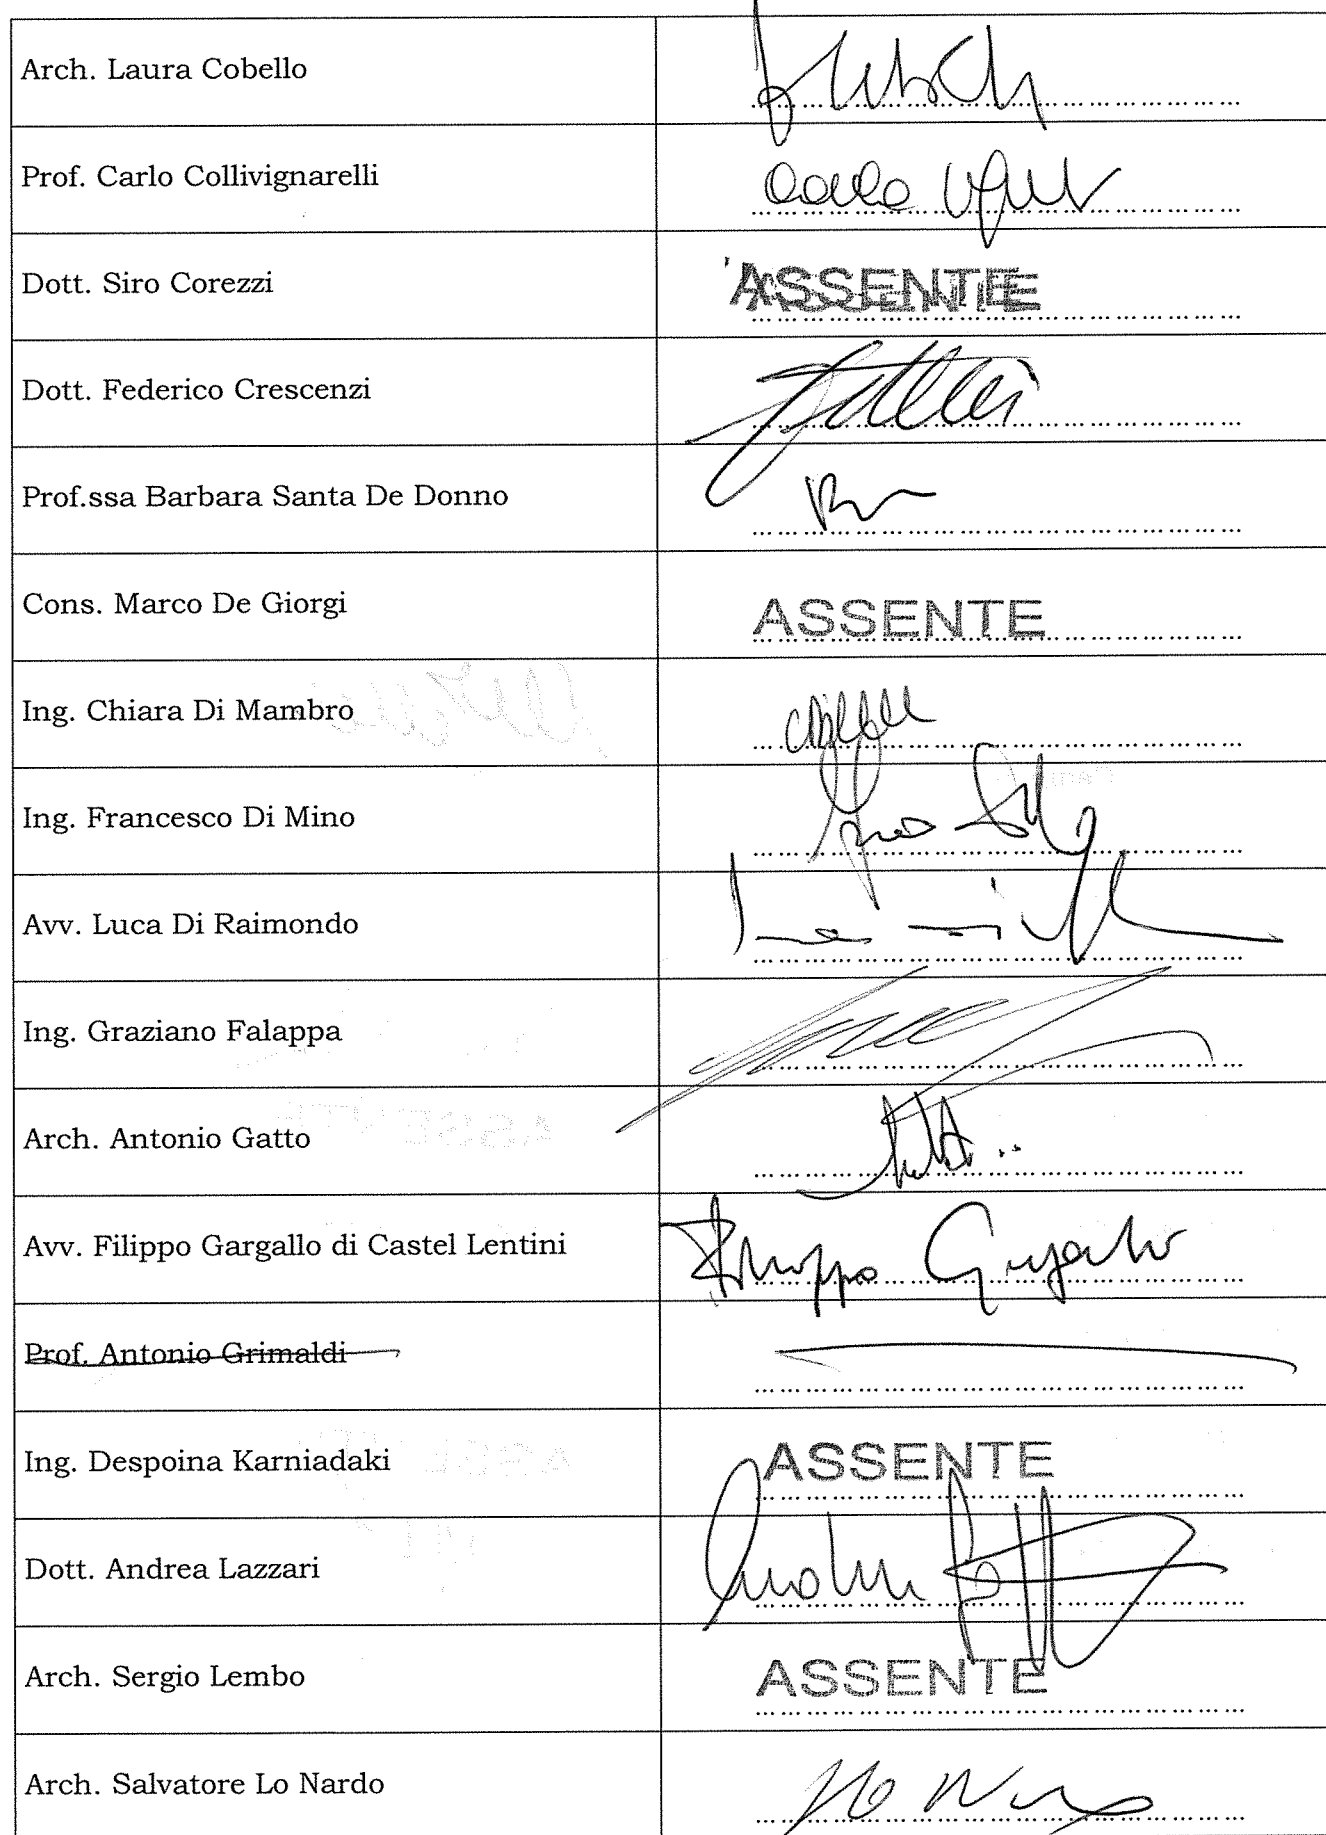 Arch. Laura Cobello
Prof. Carlo Collivignarelli
Dott. Siro Corezzi ASSENTE
Dott. Federico Crescenzi
Prof.ssa Barbara Santa De Donno
Cons. Marco De Giorgi ASSENTE
Ing. Chiara Di Mambro
Ing. Francesco Di Mino
Avv. Luca Di Raimondo
Ing. Graziano Falappa
Arch. Antonio Gatto
Avv. Filippo Gargallo di Castel Lentini Filippo Gargallo
Prof. Antonio Grimaldi
Ing. Despoina Karniadaki ASSENTE
Dott. Andrea Lazzari
Arch. Sergio Lembo ASSENTE
Arch. Salvatore Lo Nardo